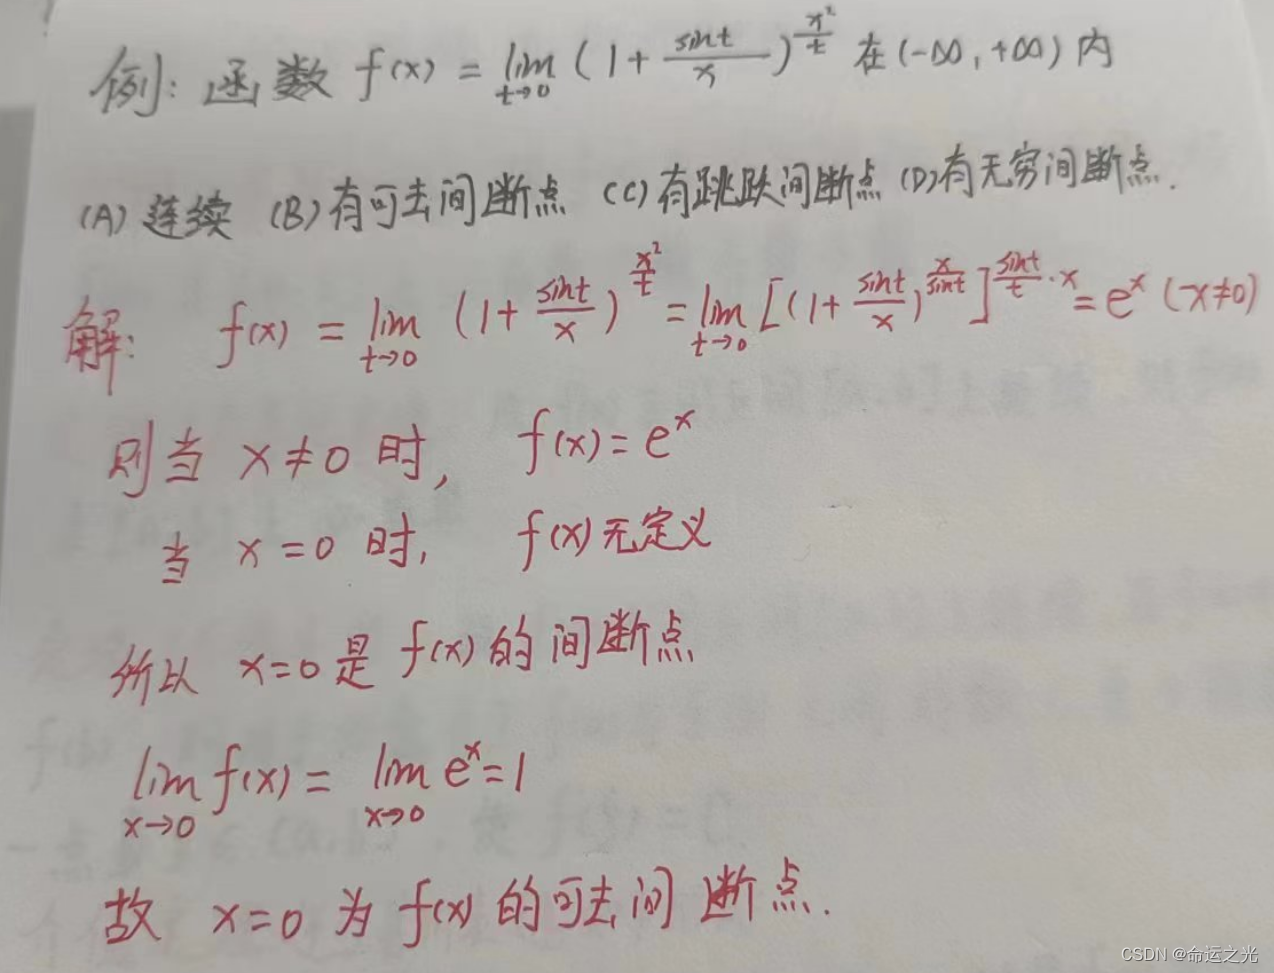 例: 函数 f(x) = lim_{t→0} (1 + sint/x)^{x²/t} 在(-∞, +∞) 内
(A) 连续 (B) 有可去间断点 (C) 有跳跃间断点 (D) 有无穷间断点.
解: f(x) = lim_{t→0} (1 + sint/x)^{x²/t} = lim_{t→0} [(1 + sint/x)^{x/sint}]^{sint/t · x} = e^x (x≠0)
则当 x≠0 时, f(x) = e^x
当 x=0 时, f(x) 无定义
所以 x=0 是 f(x) 的间断点
lim_{x→0} f(x) = lim_{x→0} e^x = 1
故 x=0 为 f(x) 的可去间断点.
CSDN @命运之光